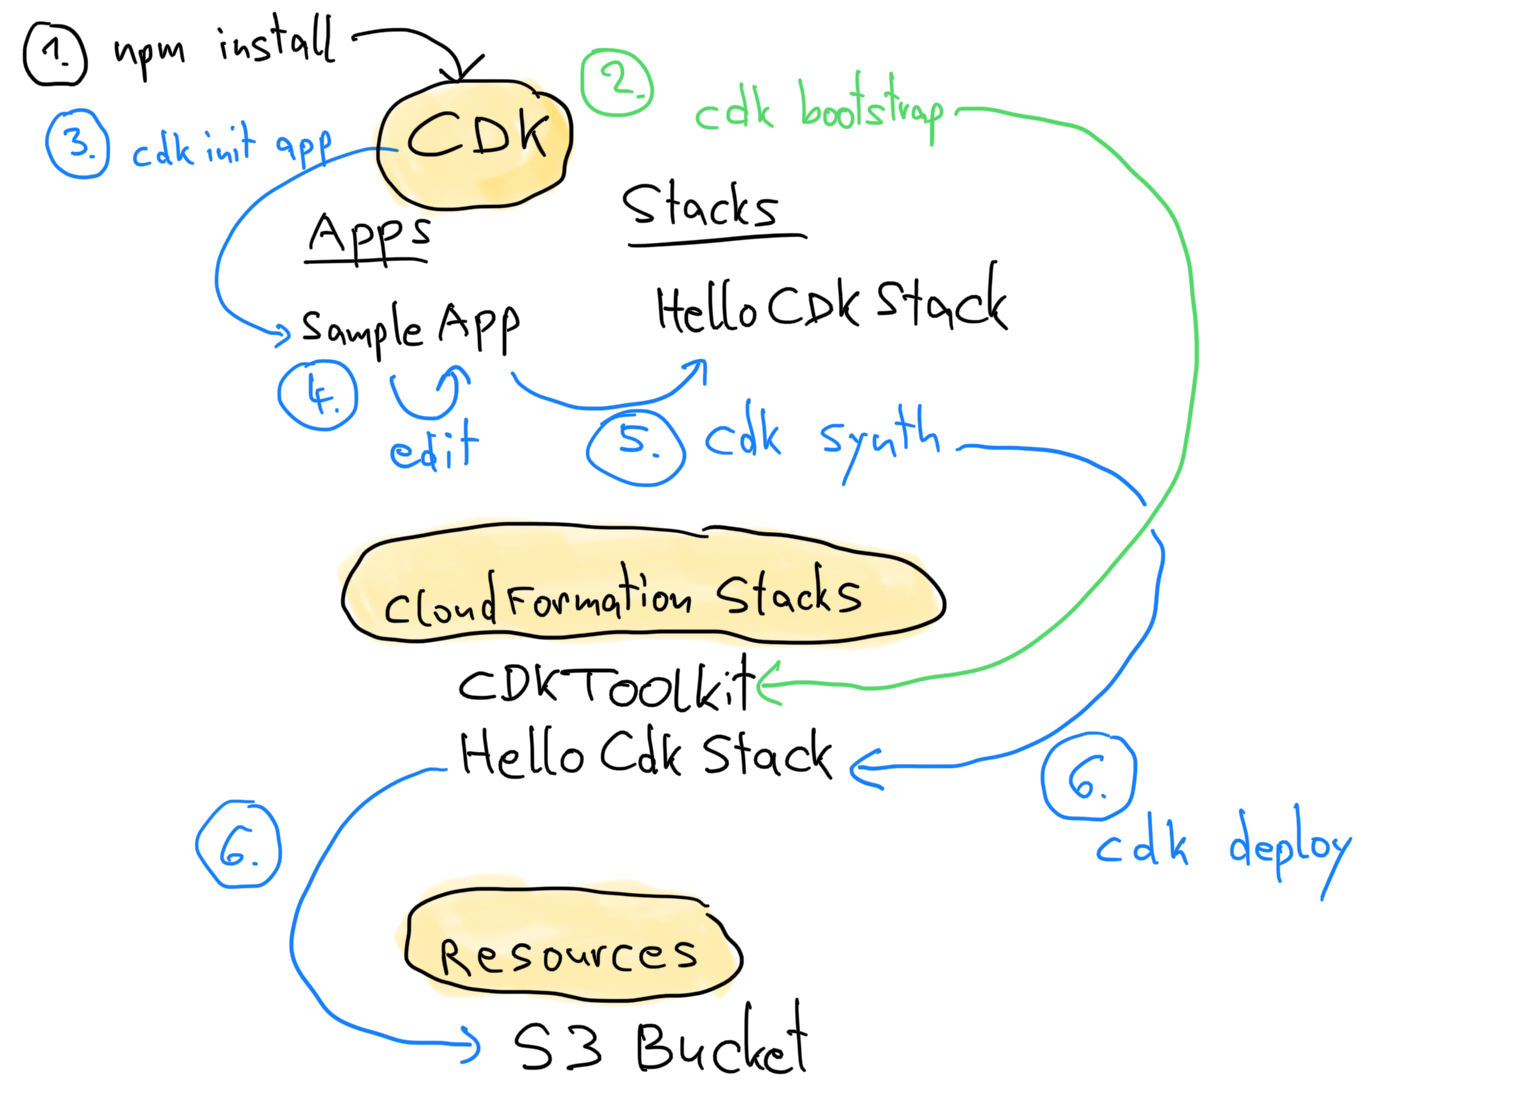 1. npm install
CDK
2. cdk bootstrap
3. cdk init app
Apps
Stacks
Sample App
HelloCDK Stack
4. edit
5. cdk synth
CloudFormation Stacks
CDKToolkit
Hello Cdk Stack
6. cdk deploy
6.
Resources
S3 Bucket